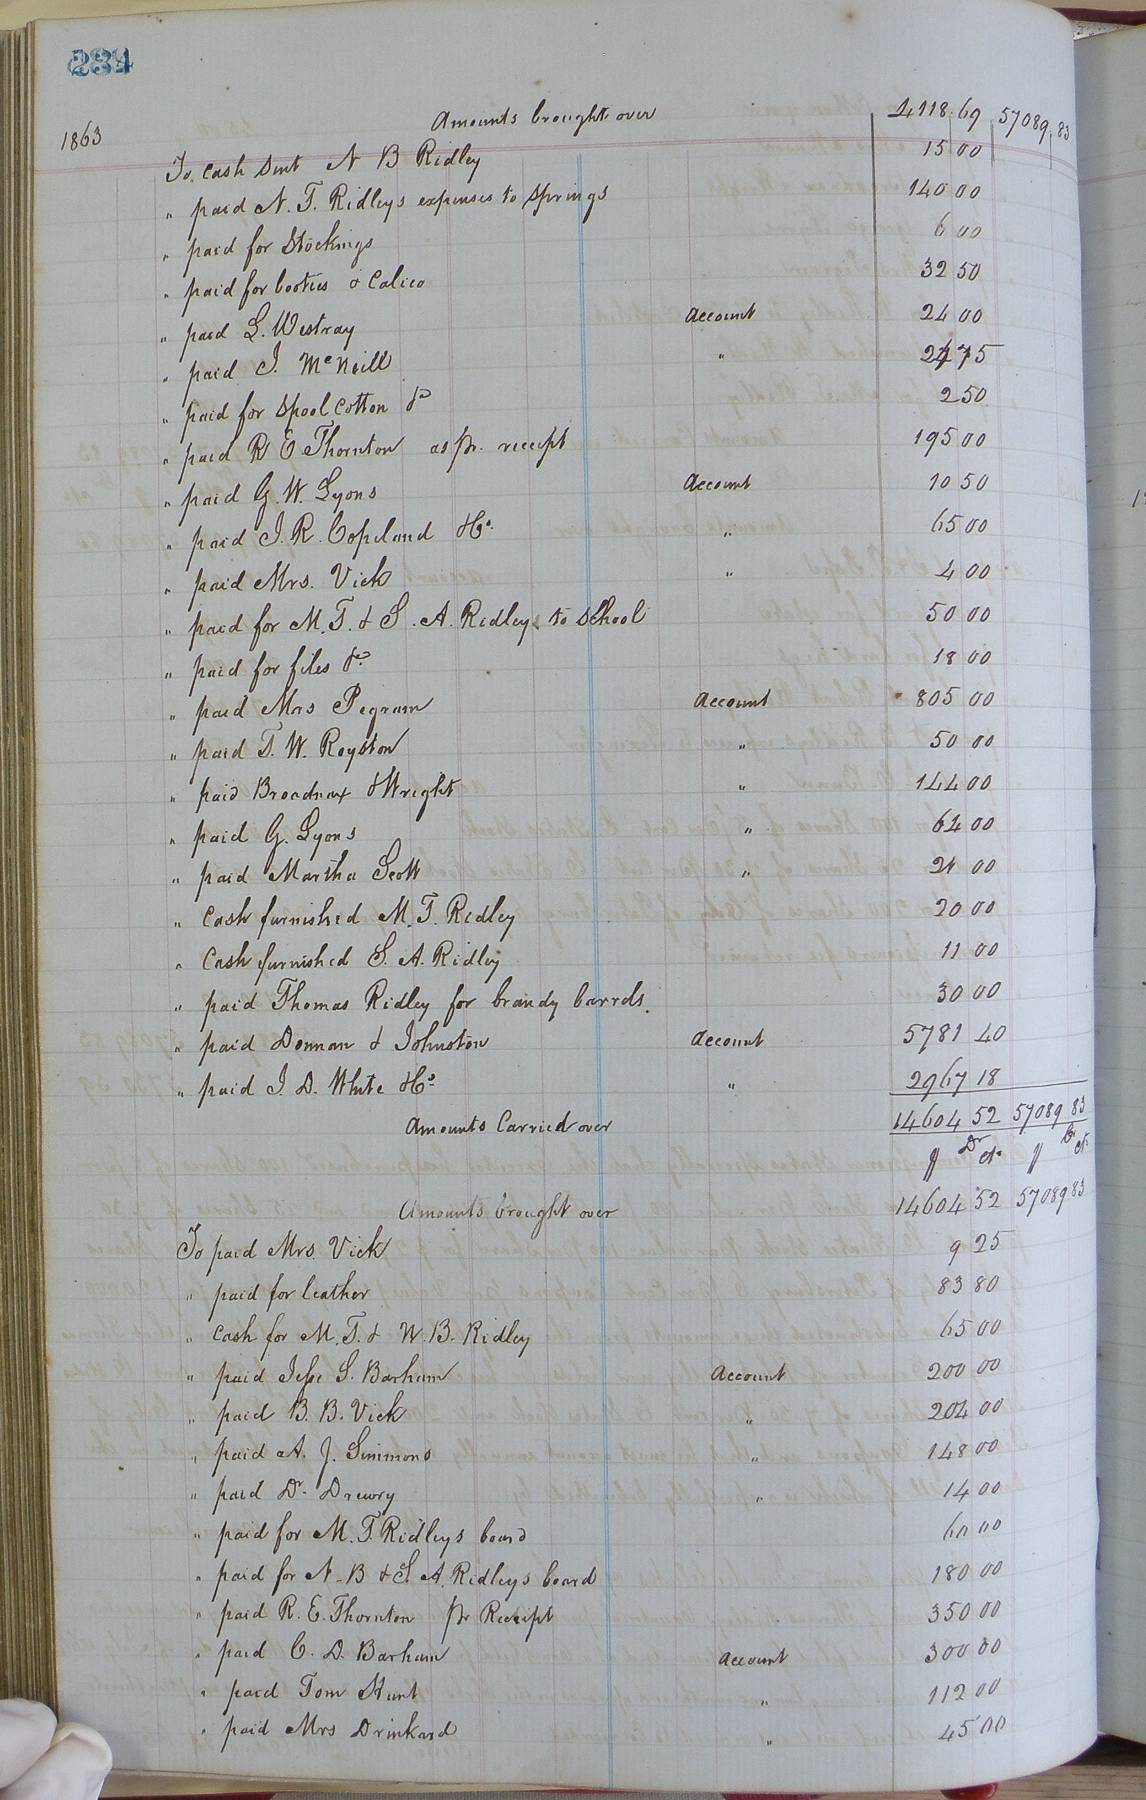 234
1863 Amounts brought over 4118.69 57089.83
To cash sent N B Ridley 15 00
" paid N. T. Ridleys expenses to Springs 140 00
" paid for Stockings 6 00
" paid for booties & Calico 32 50
" paid L. Westray Account 24 00
" paid J. McNeill " 24 75
" paid for Spool Cotton &c 2 50
" paid R E Thornton as pr. receipt 195 00
" paid G. W. Lyons Account 10 50
" paid J. R. Copeland &Co. " 65 00
" paid Mrs. Vick " 4 00
" paid for M. T. & S. A. Ridley to School 50 00
" paid for files &c 18 00
" paid Mrs Pegram Account 805 00
" paid T. W. Royston " 50 00
" paid Broadnax & Wright " 144 00
" paid G. Lyons " 64 00
" paid Martha Scott " 24 00
" Cash furnished M. T. Ridley 20 00
" Cash furnished S. A. Ridley 11 00
" paid Thomas Ridley for brandy barrels. 30 00
" paid Donnan & Johnston Account 5781 40
" paid J. D. White &Co. " 2967 18
Amounts Carried over 14604 52 57089 83
$ Dr cts. $ Cr cts
Amounts brought over 14604 52 57089 83
To paid Mrs. Vick 9 25
" paid for leather 83 80
" Cash for M. T. & N. B. Ridley 65 00
" paid Jesse S. Barham Account 200 00
" paid B. B. Vick " 204 00
" paid A. J. Simmons " 148 00
" paid Dr. Drewry " 14 00
" paid for M. T. Ridleys board 60 00
" paid for N. B & S. A. Ridleys board 180 00
" paid R. E. Thornton pr Receipt 350 00
" paid C. D. Barham Account 300 00
" paid Tom Hunt " 112 00
" paid Mrs Drinkard " 45 00